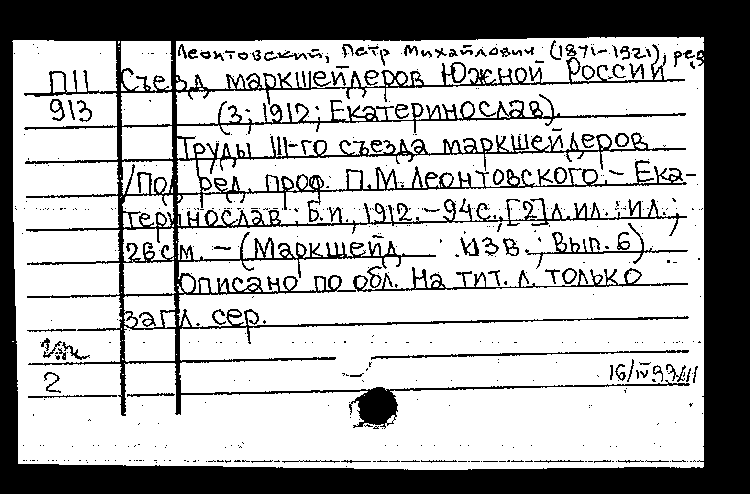 Леонтовский, Петр Михайлович (1871-1921), ред
П11 Съезд маркшейдеров Южной России
913 (3; 1912; Екатеринослав).
Труды III-го съезда маркшейдеров
/Под ред. проф. П.М. Леонтовского. - Ека-
теринослав: Б.и., 1912. - 94 с., [2] л. ил.: ил.;
26 см. - (Маркшейд. изв.; Вып. 6).
Описано по обл. На тит. л. только
загл. сер.
2